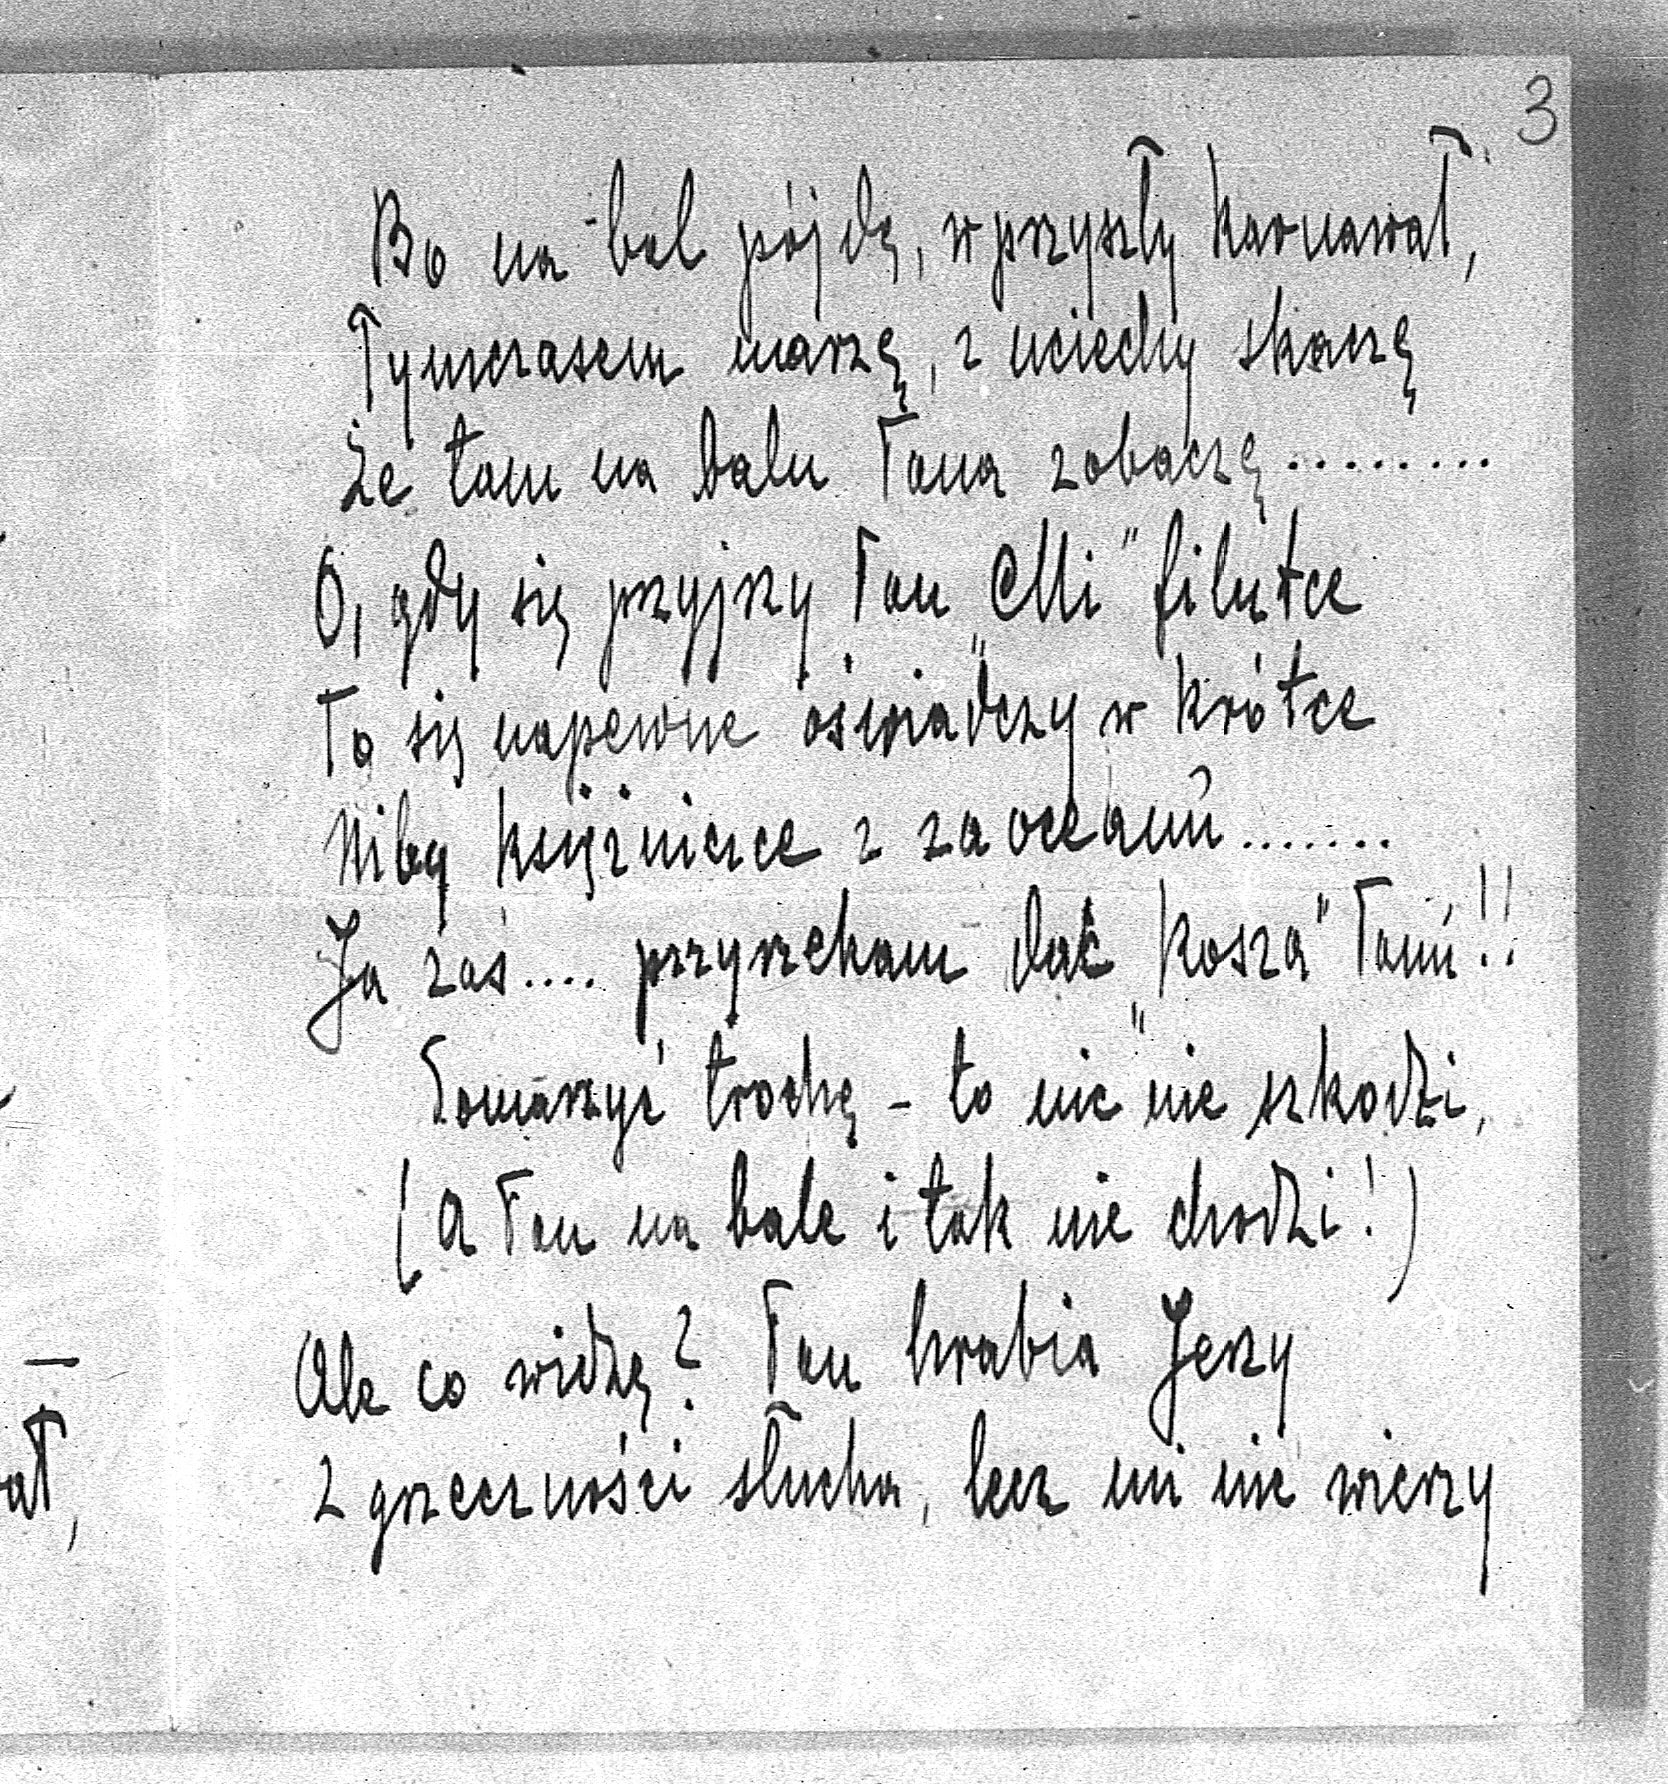 3
Bo na bal pójdę, w przyszły karnawał,
Tymczasem marzę, z uciechy skaczę
Że tam na balu Pana zobaczę.........
O, gdy się przyjrzy Pan „Mi" filutce
To się napewne oświadczy w krótce
Niby księżniczce z za oceanu.......
Ja zaś.... przyrzekam dać „kosza" Panu!!
Pomarzyć trochę - to nic nie szkodzi,
(A Pan na bale i tak nie chodzi!)
Ale co widzę? Pan hrabia Jerzy
Z grzeczności słucha, lecz mi nie wierzy
ał,